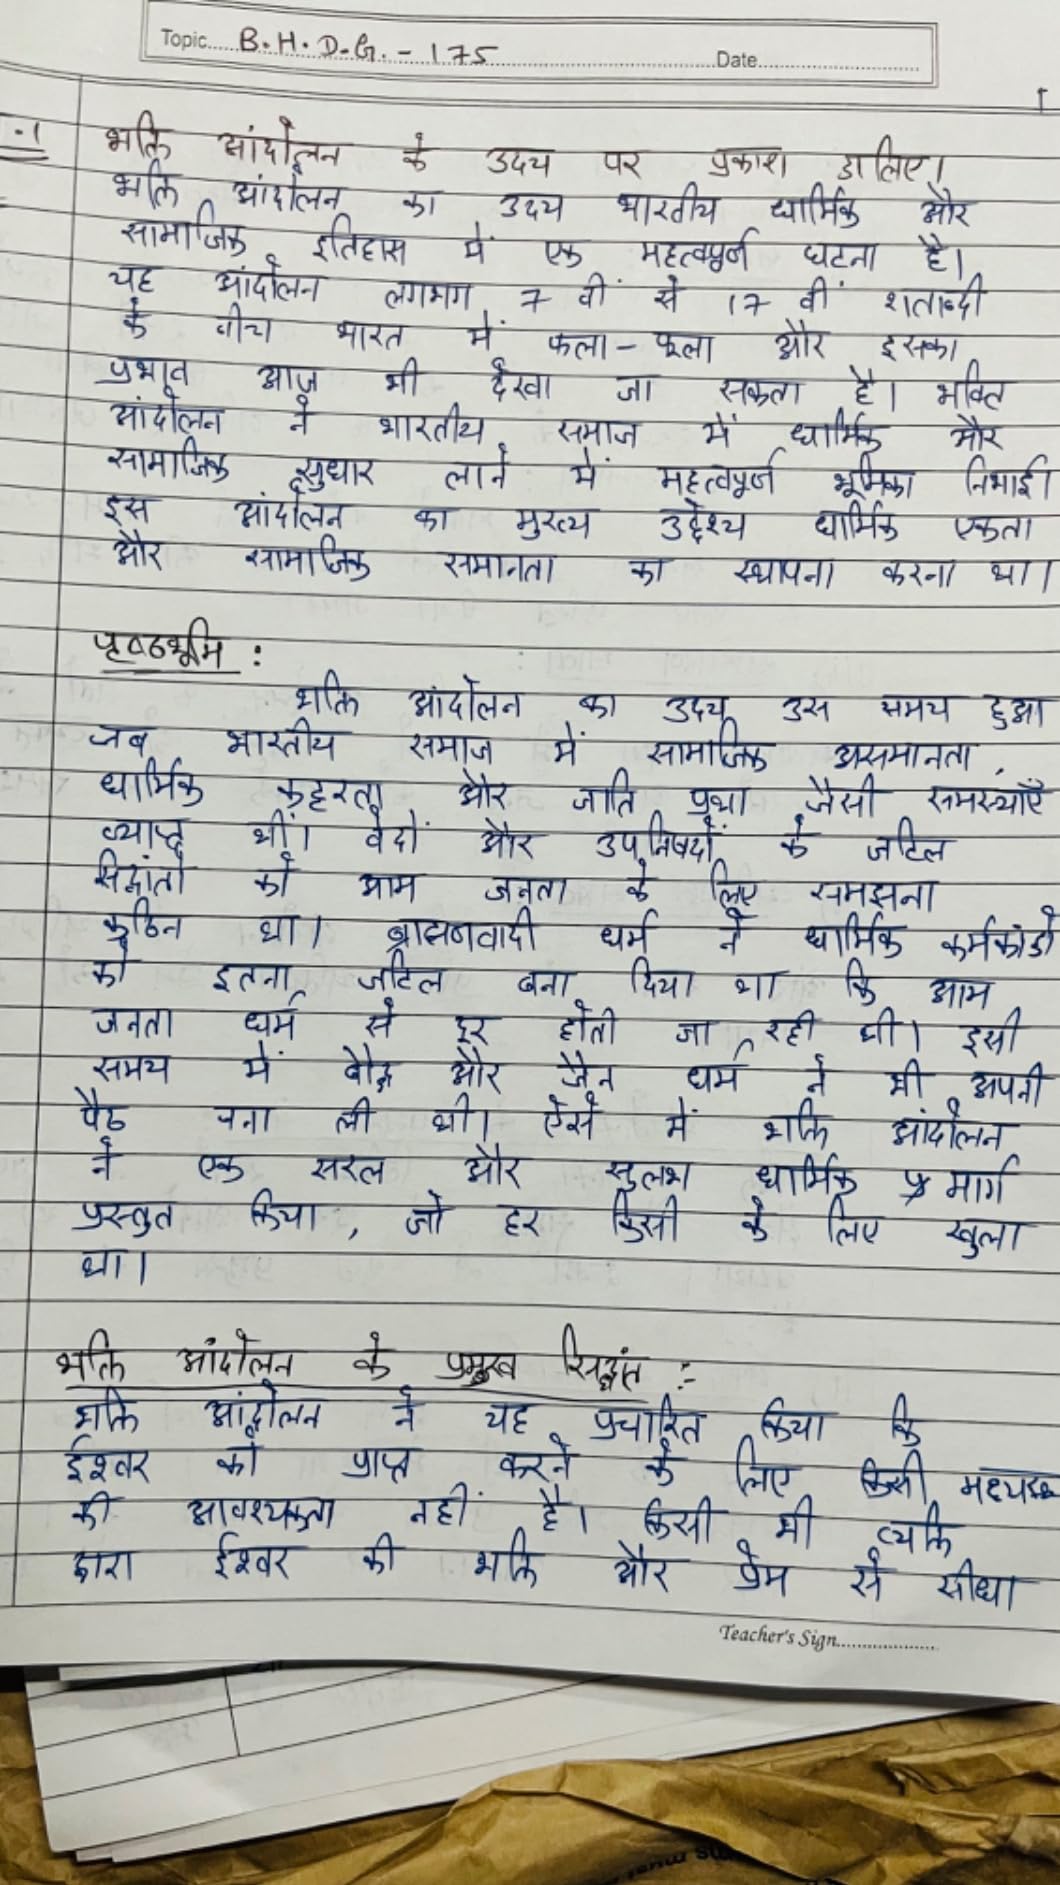 Topic..... B.H.D.G.-175 ..... Date.....
1
-1 भक्ति आंदोलन के उदय पर प्रकाश डालिए।
भक्ति आंदोलन का उदय भारतीय धार्मिक और
सामाजिक इतिहास में एक महत्वपूर्ण घटना है।
यह आंदोलन लगभग 7 वीं से 17 वीं शताब्दी
के बीच भारत में फला-फूला और इसका
प्रभाव आज भी देखा जा सकता है। भक्ति
आंदोलन ने भारतीय समाज में धार्मिक और
सामाजिक सुधार लाने में महत्वपूर्ण भूमिका निभाई।
इस आंदोलन का मुख्य उद्देश्य धार्मिक एकता
और सामाजिक समानता का स्थापना करना था।
पृष्ठभूमि :
भक्ति आंदोलन का उदय उस समय हुआ
जब भारतीय समाज में सामाजिक असमानता,
धार्मिक कट्टरता और जाति प्रथा जैसी समस्याएँ
व्याप्त थीं। वेदों और उपनिषदों के जटिल
सिद्धांतो को आम जनता के लिए समझना
कठिन था। ब्राह्मणवादी धर्म ने धार्मिक कर्मकांडो
को इतना जटिल बना दिया था कि आम
जनता धर्म से दूर होती जा रही थी। इसी
समय में बौद्ध और जैन धर्म ने भी अपनी
पैठ बना ली थी। ऐसे में भक्ति आंदोलन
ने एक सरल और सुलभ धार्मिक मार्ग
प्रस्तुत किया, जो हर किसी के लिए खुला
था।
भक्ति आंदोलन के प्रमुख सिद्धांत :-
भक्ति आंदोलन ने यह प्रचारित किया कि
ईश्वर को प्राप्त करने के लिए किसी मध्यस्थ
की आवश्यकता नहीं है। किसी भी व्यक्ति
द्वारा ईश्वर की भक्ति और प्रेम से सीधा
Teacher's Sign.....